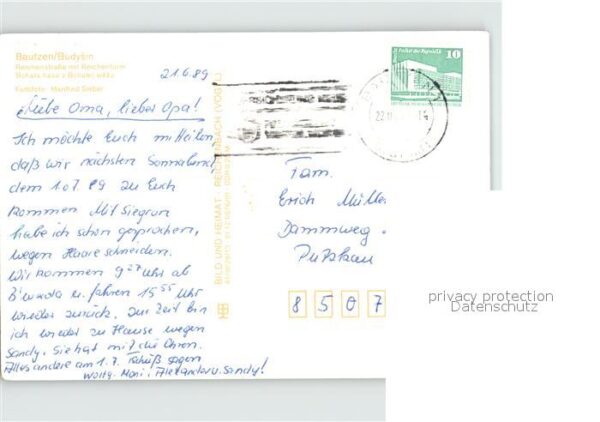 Bautzen/Budyšin
Reichenstraße mit Reichenturm
Bohata hasa z Bohatej wěžu
Farbfoto: Manfred
21.6.89
Liebe Oma, lieber Opa!
Ich möchte Euch mitteilen,
daß wir nächsten Sonnabend
dem 1.07.89 zu Euch
kommen. Mit Siegrun
habe ich schon gesprochen,
wegen Haare schneiden.
Wir kommen 9 27 Uhr ab
B'werda u. fahren 15 55 Uhr
wieder zurück. Zur Zeit bin
ich wieder zu Hause wegen
Sandy. Sie hat mit die Ohren.
Alles andere am 1.7. Tschüß sagen
Wolfg. Moni, Alexander u. Sandy!
BILD UND HEIMAT REICHENBACH (VOGTL)
Palast der Republik
10
DDR
Fam.
Erich
Dammweg
Putzkau
8 5 0 7
privacy protection
Datenschutz